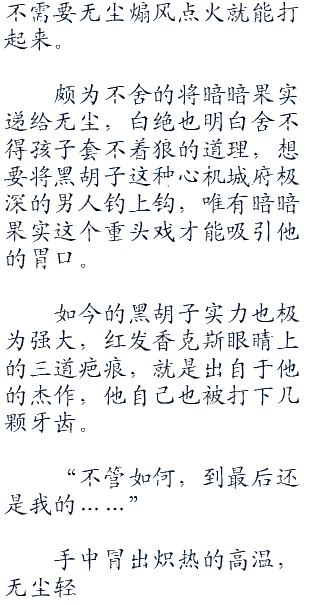 不需要无尘煽风点火就能打
起来。
颇为不舍的将暗暗果实
递给无尘，白绝也明白舍不
得孩子套不着狼的道理，想
要将黑胡子这种心机城府极
深的男人钓上钩，唯有暗暗
果实这个重头戏才能吸引他
的胃口。
如今的黑胡子实力也极
为强大，红发香克斯眼睛上
的三道疤痕，就是出自于他
的杰作，他自己也被打下几
颗牙齿。
“不管如何，到最后还
是我的……”
手中冒出炽热的高温，
无尘轻